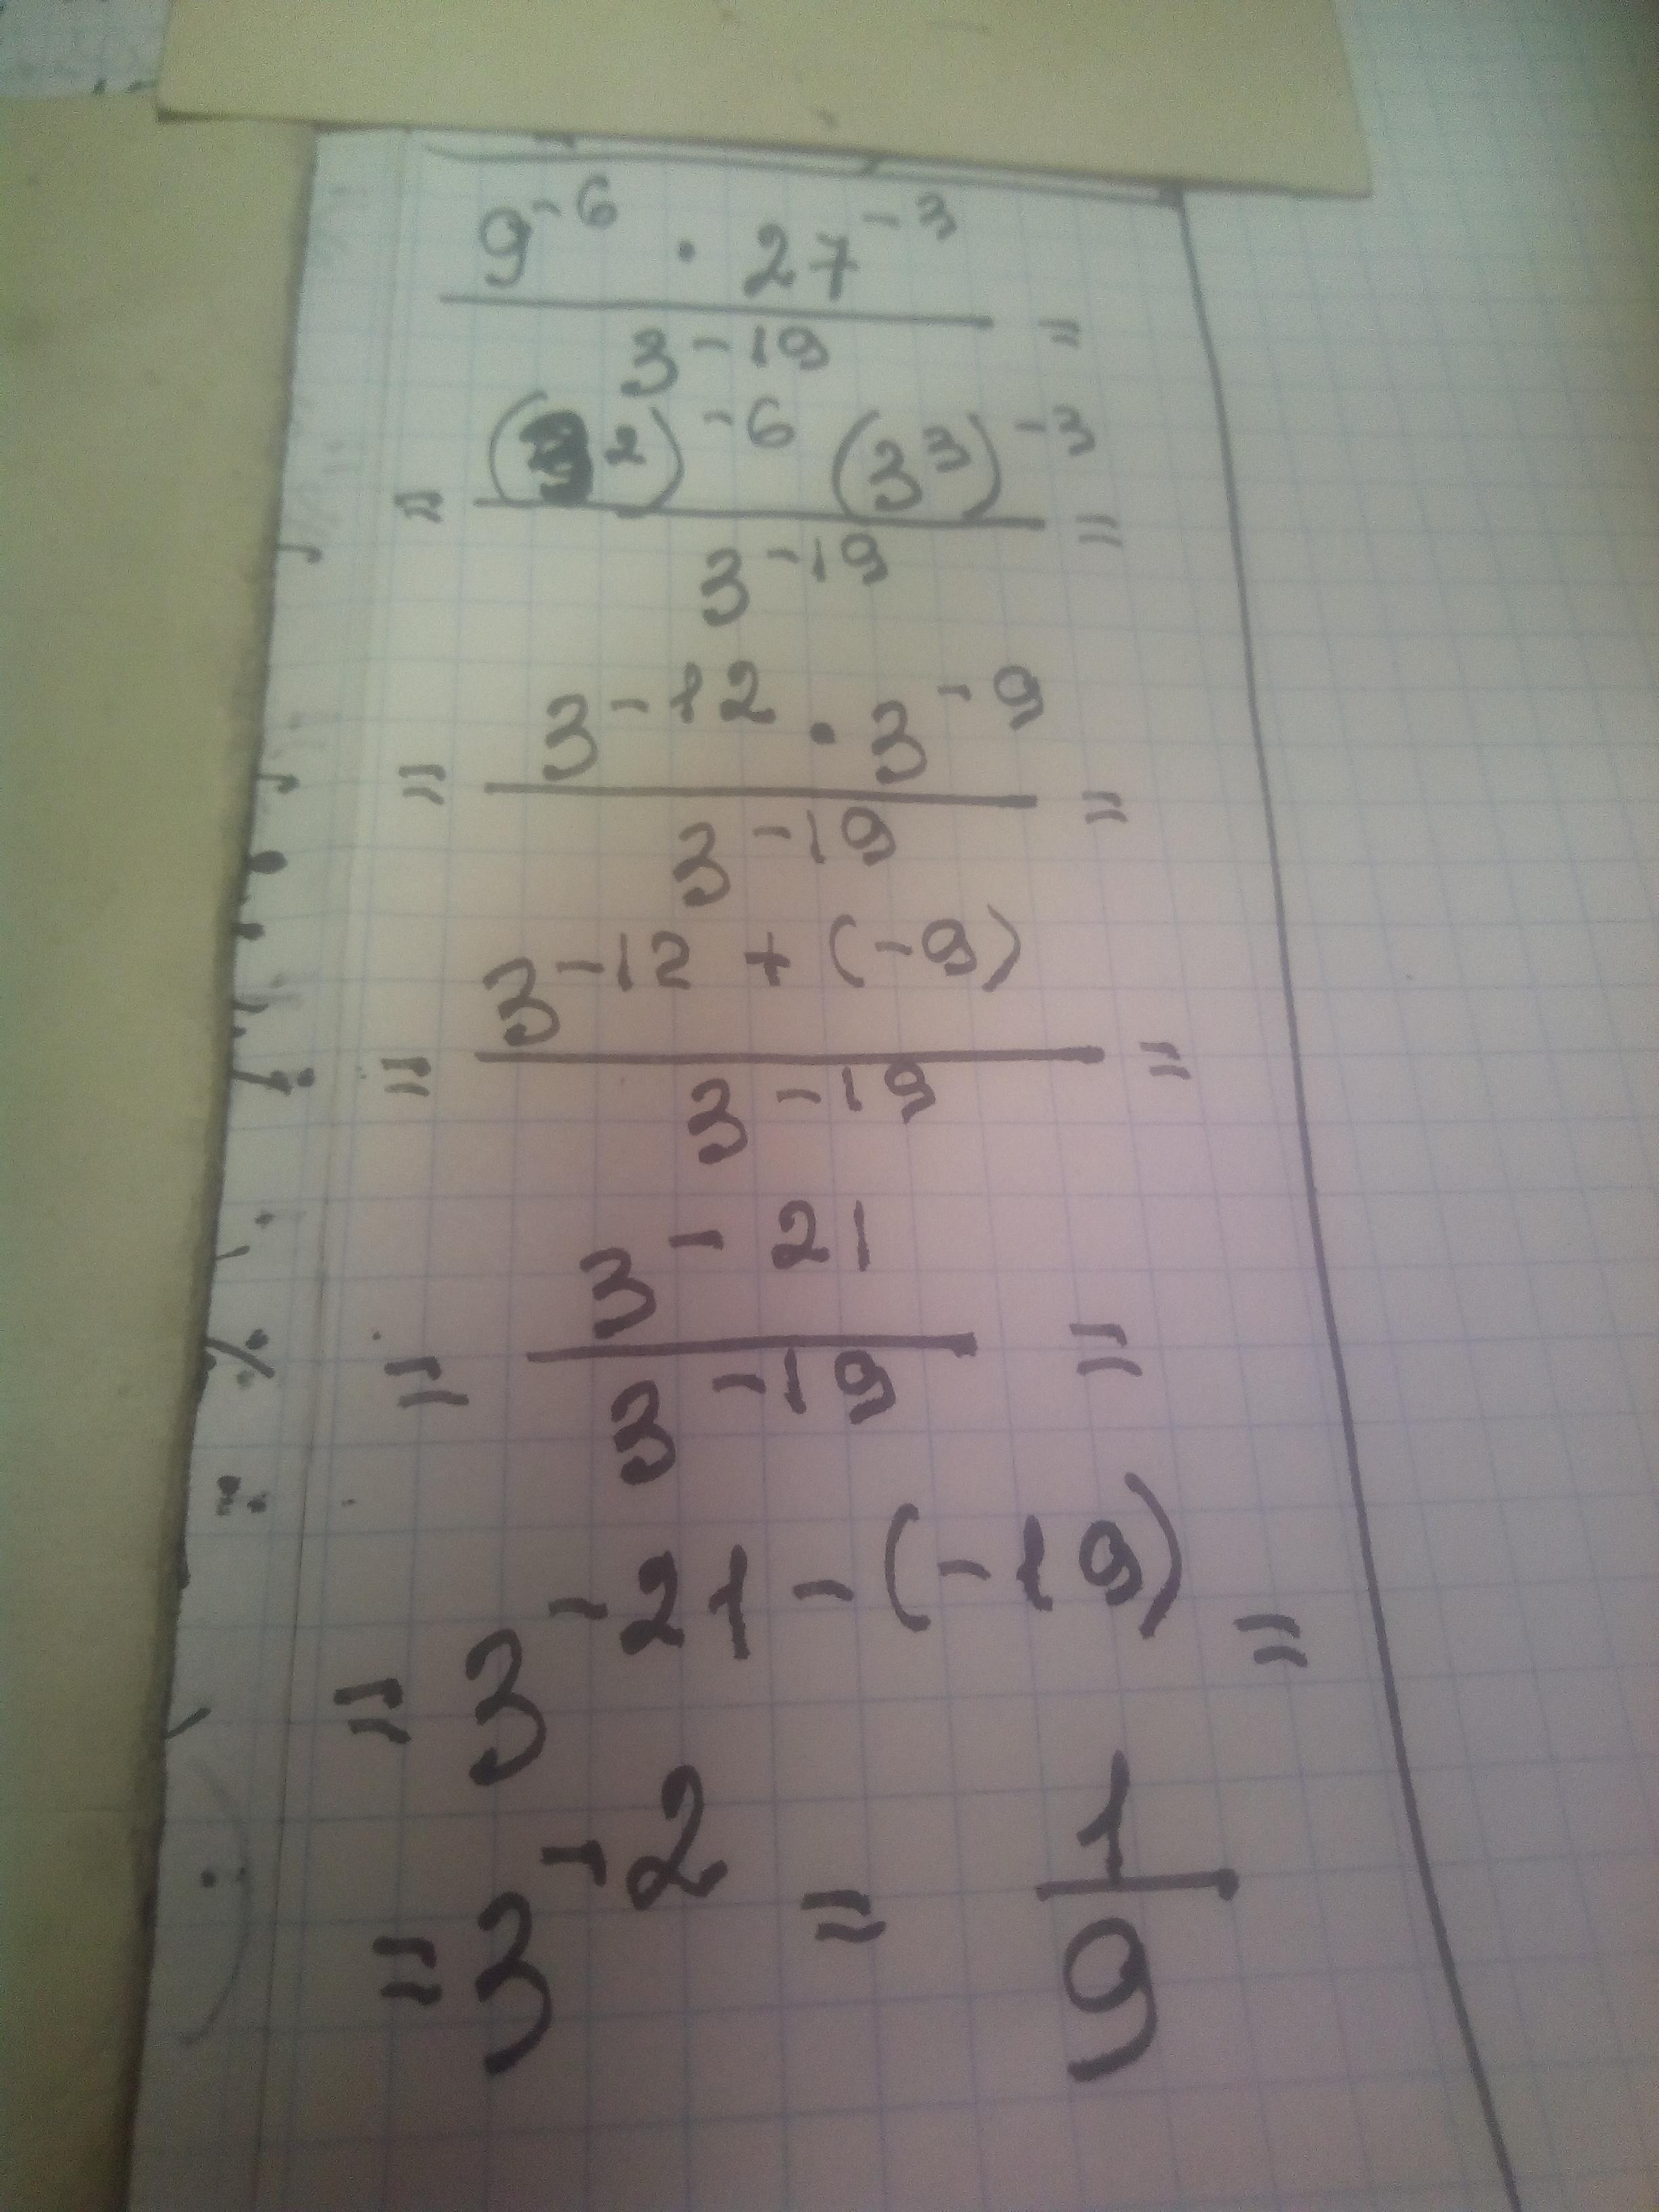 9^-6 · 27^-3 / 3^-19 =
= (3^2)^-6 (3^3)^-3 / 3^-19 =
= 3^-12 · 3^-9 / 3^-19 =
= 3^-12 + (-9) / 3^-19 =
= 3^-21 / 3^-19 =
= 3^-21-(-19) =
= 3^-2 = 1/9